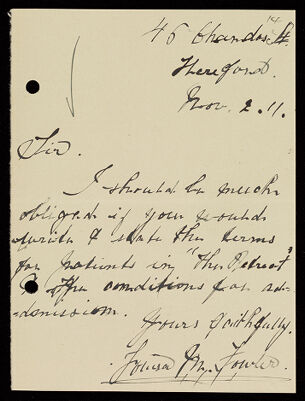 14
46 Chandos St.
Hereford.
Nov. 2. 11.
Sir.
I should be much
obliged if you would
write & state the terms
for patients in "The Retreat"
& the conditions for ad-
dmission.
Yours faithfully.
Louisa M. Fowler.